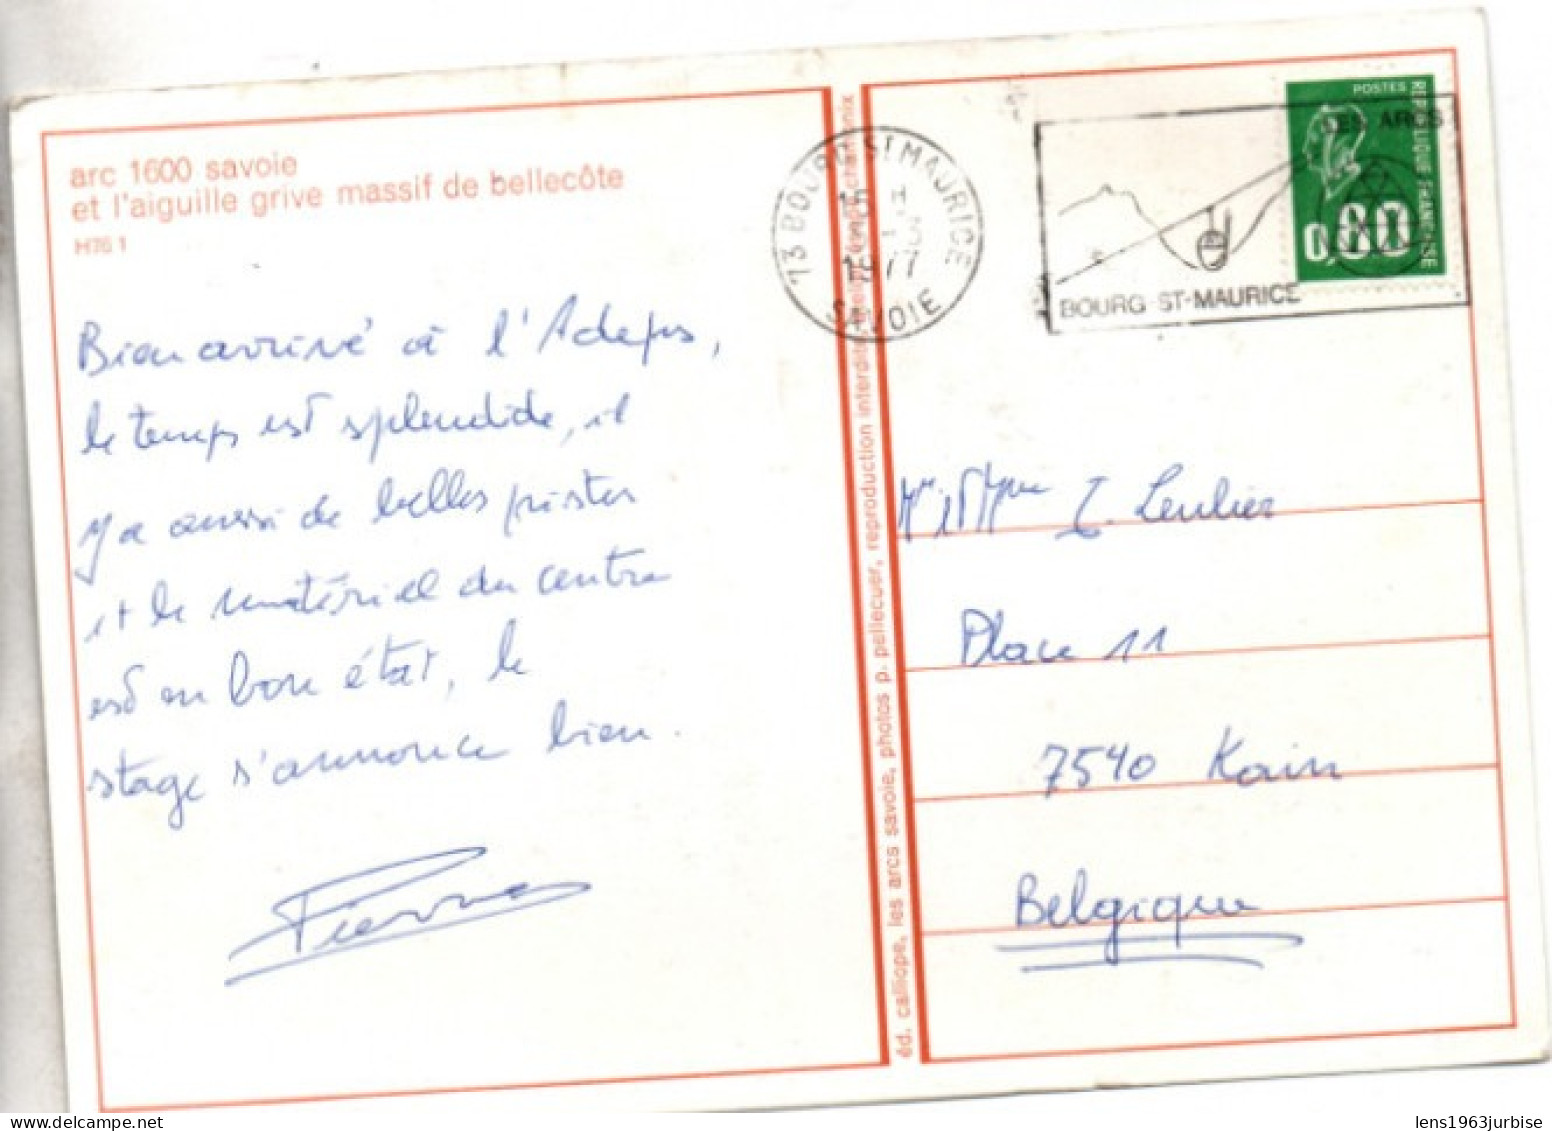 arc 1600 savoie
et l'aiguille grive massif de bellecôte
H76 1
Bien arrivé à l'Adeps,
le temps est splendide, il
y a aussi de belles pistes
et le matériel du centre
est en bon état, le
stage s'annonce bien.
Pierre
éd. calliope, les arcs savoie, photos p. pellecuer, reproduction interdite
chamonix
73 BOURG ST MAURICE
1977
SAVOIE
LES ARCS
BOURG-ST-MAURICE
POSTES
REPUBLIQUE FRANCAISE
0,80
Place 11
7540 Kain
Belgique
lens1963jurbise